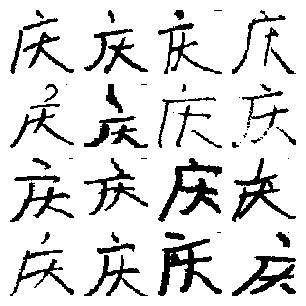 庆庆庆庆
庆庆庆庆
庆庆庆庆
庆庆庆庆